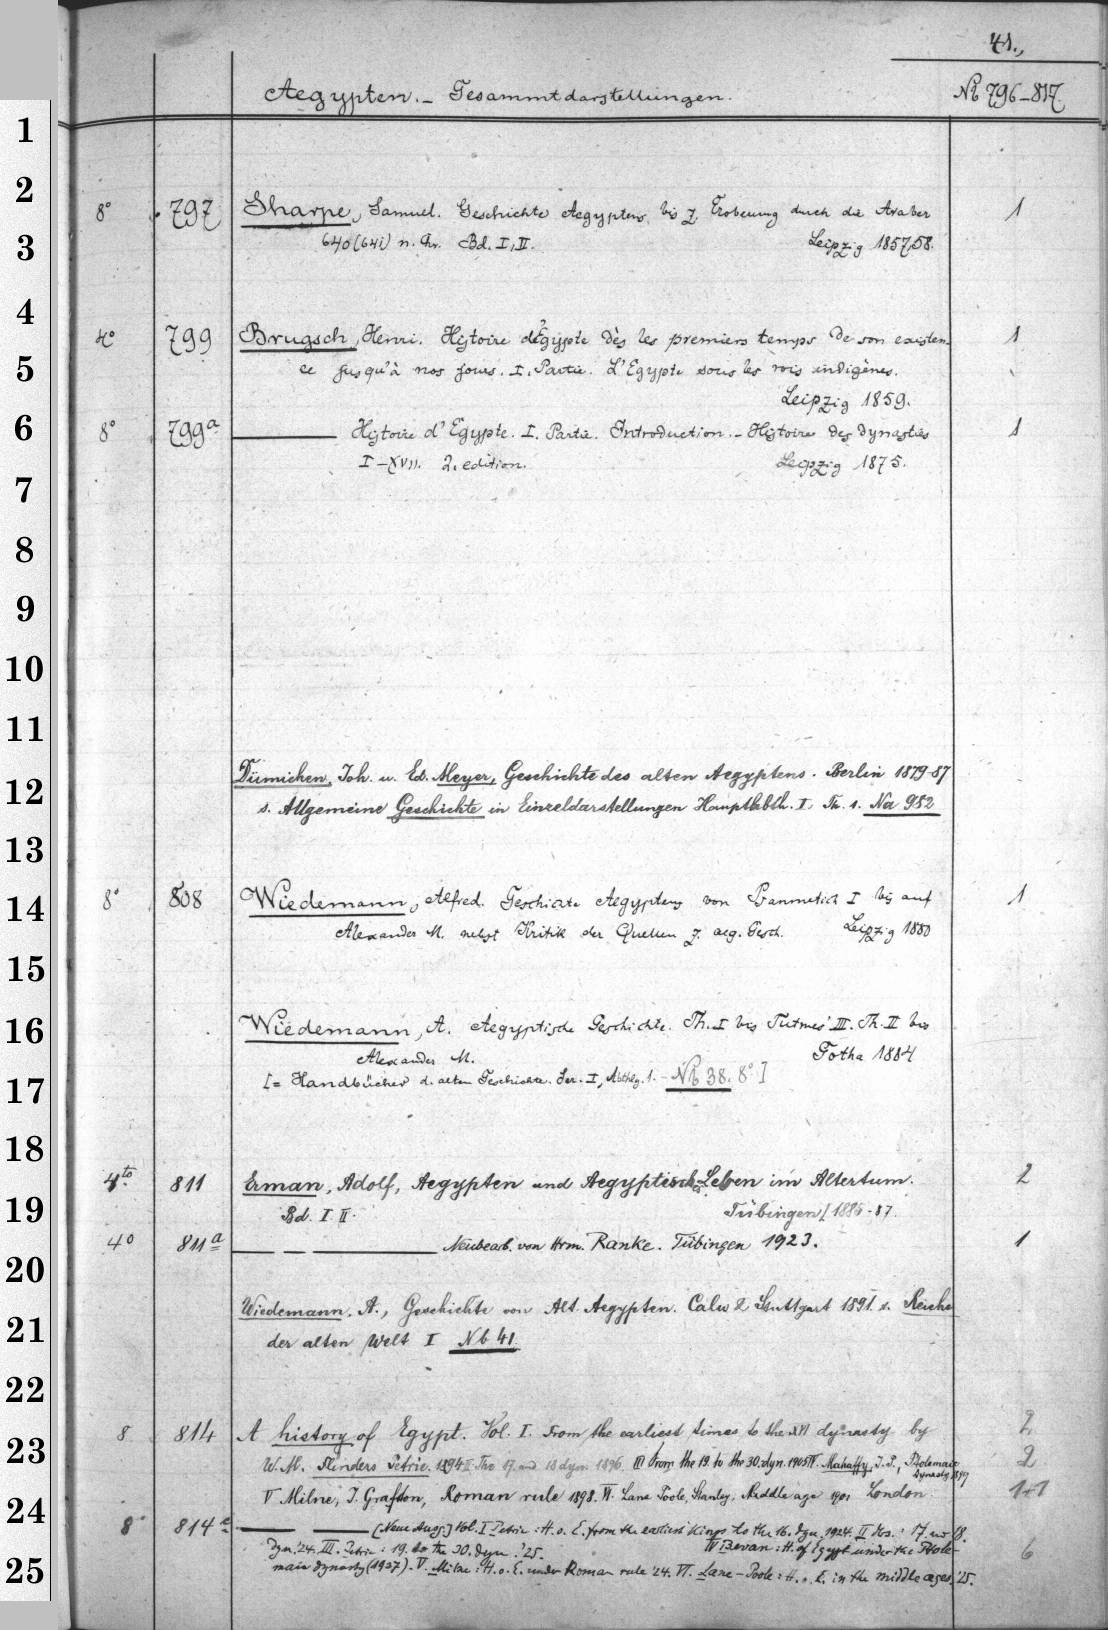 41.,
Aegypten. – Gesammtdarstellungen. Nb 796–817
8° 797 Sharpe, Samuel. Geschichte Aegyptens bis z. Eroberung durch die Araber 1
640 (641) n. Chr. Bd. I, II. Leipzig 1857/58.
4° 799 Brugsch, Henri. Histoire d'Egypte dès les premiers temps de son existen- 1
ce jusqu'à nos jours. I. Partie. L'Egypte sous les rois indigènes.
Leipzig 1859.
8° 799a ——— Histoire d'Egypte. I. Partie. Introduction. – Histoire des dynasties 1
I–XVII. 2. edition. Leipzig 1875.
Dümichen, Joh. u. Ed. Meyer, Geschichte des alten Aegyptens. Berlin 1879-87
s. Allgemeine Geschichte in Einzeldarstellungen Hauptabth. I. Th. 1. Na 952
8° 808 Wiedemann, Alfred. Geschichte Aegyptens von Psammetich I bis auf 1
Alexander M. nebst Kritik der Quellen z. aeg. Gesch. Leipzig 1880
Wiedemann, A. Aegyptische Geschichte. Th. I bis Tutmes' III. Th. II bis
Alexander M. Gotha 1884
[= Handbücher d. alten Geschichte. Ser. I, Abthlg. 1. – Nb 38. 8°]
4to 811 Erman, Adolf, Aegypten und Aegyptisches Leben im Altertum. 2
Bd. I II. Tübingen [1885-87.
4° 811a — — ——— Neubearb. von Hrm. Ranke. Tübingen 1923. 1
Wiedemann, A., Geschichte von Alt. Aegypten. Calw & Stuttgart 1891. s. Reiche
der alten Welt I Nb 41
8 814 A history of Egypt. Vol. I. From the earliest times to the XVI dynasty by 2
W. M. Flinders Petrie. 1894 II The 17. and 18 dyn. 1896. III From the 19. to the 30. dyn. 1905 IV. Mahaffy, J. P., Ptolemaic Dynasty 1899 2
V Milne, J. Grafton, Roman rule 1898. VI. Lane Poole, Stanley, Middle age 1901 London 1+1
8° 814a —— —— [Neue Ausg.] Vol. I Petrie: H. o. E. from the earliest kings to the 16. dyn. 1924. II Ders.: 17. u. 18.
Dyn. '24. III. Petrie: 19. to the 30. dyn. '25. IV Bevan: H. of Egypt under the Ptole- 6
maic dynasty (1927). V. Milne: H. o. E. under Roman rule '24. VI. Lane-Poole: H. o. E. in the middle ages, '25.
1
2
3
4
5
6
7
8
9
10
11
12
13
14
15
16
17
18
19
20
21
22
23
24
25